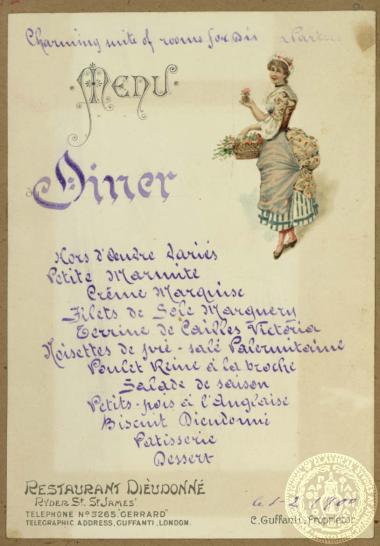 Charming suite of rooms for Parties
Menu
Diner
Hors d'Œuvre Variés
Petite Marmite
Crême Marquise
Filets de Sole Marguery
Terrine de Cailles Victoria
Noisettes de pré-salé Palermitaine
Poulet Reine à la broche
Salade de saison
Petits-pois à l'Anglaise
Biscuit Dieudonné
Patisserie
Dessert
RESTAURANT DIEUDONNÉ
RYDER ST. ST JAMES'
TELEPHONE Nº 5265 "GERRARD"
TELEGRAPHIC ADDRESS, GUFFANTI, LONDON.
C. Guffanti, Proprietor